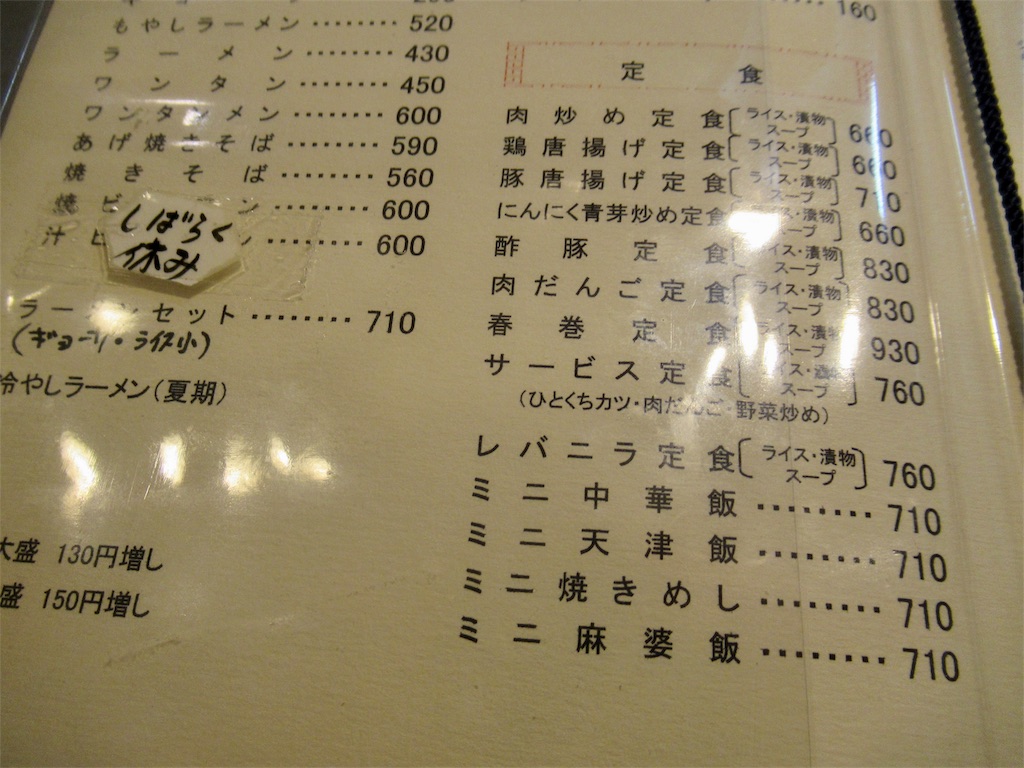 もやしラーメン ‥‥‥‥ 520
ラーメン ‥‥‥‥ 430
ワンタン ‥‥‥‥ 450
ワンタンメン ‥‥‥‥ 600
あげ焼きそば ‥‥‥‥ 590
焼きそば ‥‥‥‥ 560
焼ビ ン ‥‥‥‥ 600
汁ビ ン ‥‥‥‥ 600
しばらく
休み
ラーメンセット ‥‥‥‥ 710
(ギョーザ・ライス小)
冷やしラーメン(夏期)
大盛 130円増し
盛 150円増し
160
定食
肉炒め定食〔ライス・漬物 スープ〕 660
鶏唐揚げ定食〔ライス・漬物 スープ〕 660
豚唐揚げ定食〔ライス・漬物 スープ〕 710
にんにく青芽炒め定食〔ライス・漬物 スープ〕 660
酢豚定食〔ライス・漬物 スープ〕 830
肉だんご定食〔ライス・漬物 スープ〕 830
春巻定食〔ライス・漬物 スープ〕 930
サービス定食〔ライス・漬物 スープ〕 760
(ひとくちカツ・肉だんご・野菜炒め)
レバニラ定食〔ライス・漬物 スープ〕 760
ミニ中華飯 ‥‥‥‥ 710
ミニ天津飯 ‥‥‥‥ 710
ミニ焼きめし ‥‥‥‥ 710
ミニ麻婆飯 ‥‥‥‥ 710